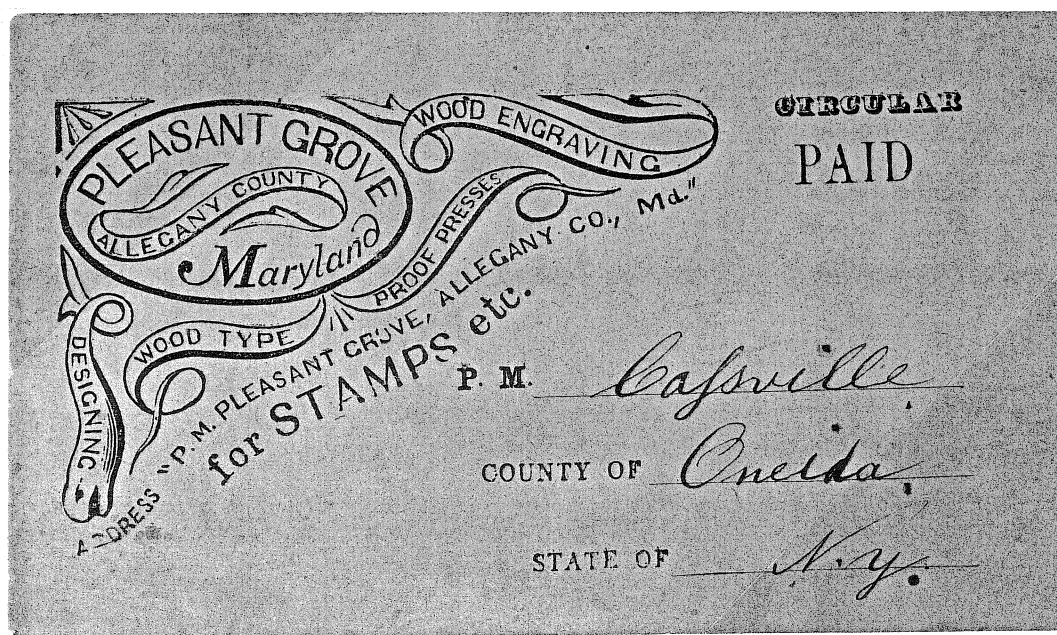 PLEASANT GROVE
ALLEGANY COUNTY
Maryland
WOOD ENGRAVING
PROOF PRESSES
WOOD TYPE
DESIGNING
ADDRESS "P. M. PLEASANT GROVE, ALLEGANY CO., Md."
for STAMPS etc.
CIRCULAR
PAID
P. M. Cassville
COUNTY OF Oneida
STATE OF N.Y.